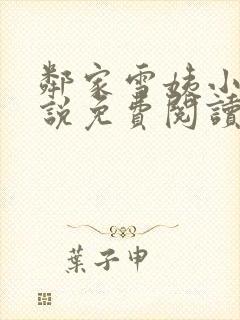 鄰家雪姨小
說免費閱讀
葉子申